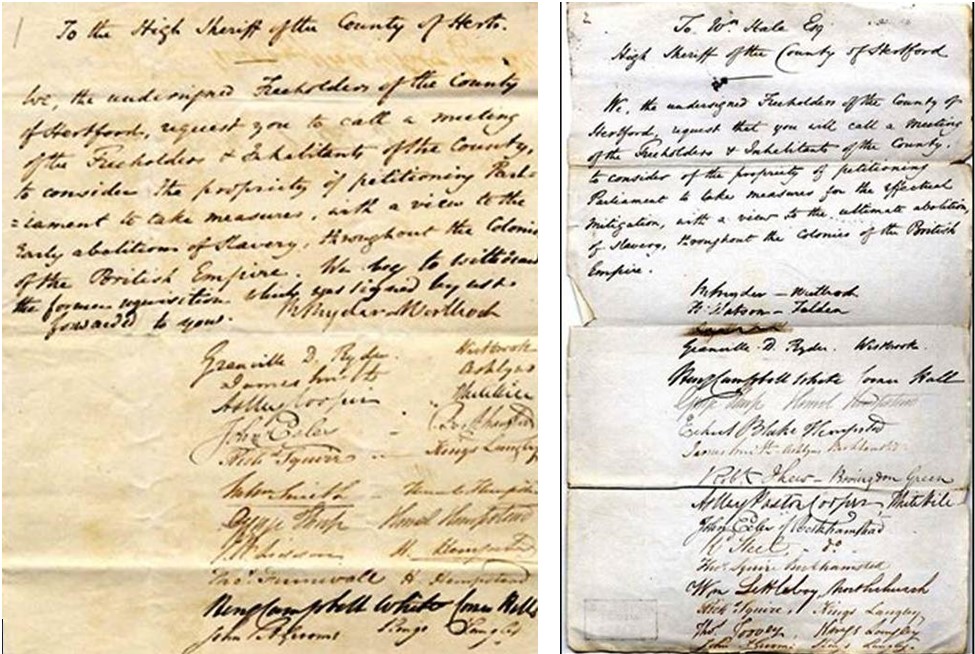 To the High Sheriff of the County of Herts.
We, the undersigned Freeholders of the County
of Hertford, request you to call a meeting
of the Freeholders & Inhabitants of the County,
to consider the propriety of petitioning Parli-
=iament to take measures, with a view to the
early abolition of Slavery, throughout the Colonies
of the British Empire. We beg to withdraw
the former requisition which was signed by us &
forwarded to you.
Granville D. Ryder. Westbrook
James Smith Ashlyns
Astley Cooper
John Eeles
Nich Squire Kings Langley
John Smith Hemel Hempstead
Hemel Hempstead
H. Hempstead
Thos. H. Hempstead
Henry Campbell White Corner Hall
John Kings Langley
2
To Wm Hale Esq
High Sheriff of the County of Hertford
We, the undersigned Freeholders of the County of
Hertford, request that you will call a Meeting
of the Freeholders & Inhabitants of the County,
to consider of the propriety of petitioning
Parliament to take measures for the effectual
Mitigation, with a view to the ultimate abolition
of Slavery, throughout the Colonies of the British
Empire.
Granville D. Ryder. Westbrook.
Henry Campbell White Corner Hall
Hemel Hempstead
Blake Hempsted
James Smith Ashlyns
Bovingdon Green
Astley Paston Cooper
John Eeles of Berkhamstead
do.
Thos. Squire Berkhamsted
Wm Littleboy Northchurch
Nich Squire, Kings Langley
Thos. Toovey, Kings Langley
John Kings Langley